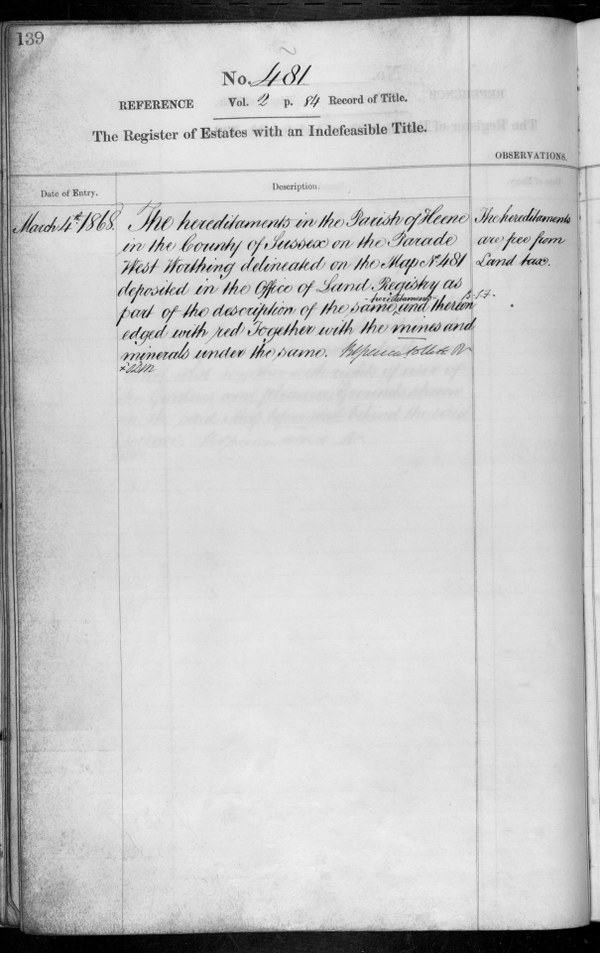 139
No. 481
REFERENCE Vol. 2 p. 84 Record of Title.
The Register of Estates with an Indefeasible Title.
OBSERVATIONS.
Date of Entry.
Description.
March 4th 1868.
The hereditaments in the Parish of Heene
in the County of Sussex on the Parade
West Worthing delineated on the Map No. 481
deposited in the Office of Land Registry as
hereditaments
part of the description of the same, and thereon
edged with red Together with the mines and
minerals under the same.
The hereditaments
are free from
Land tax.